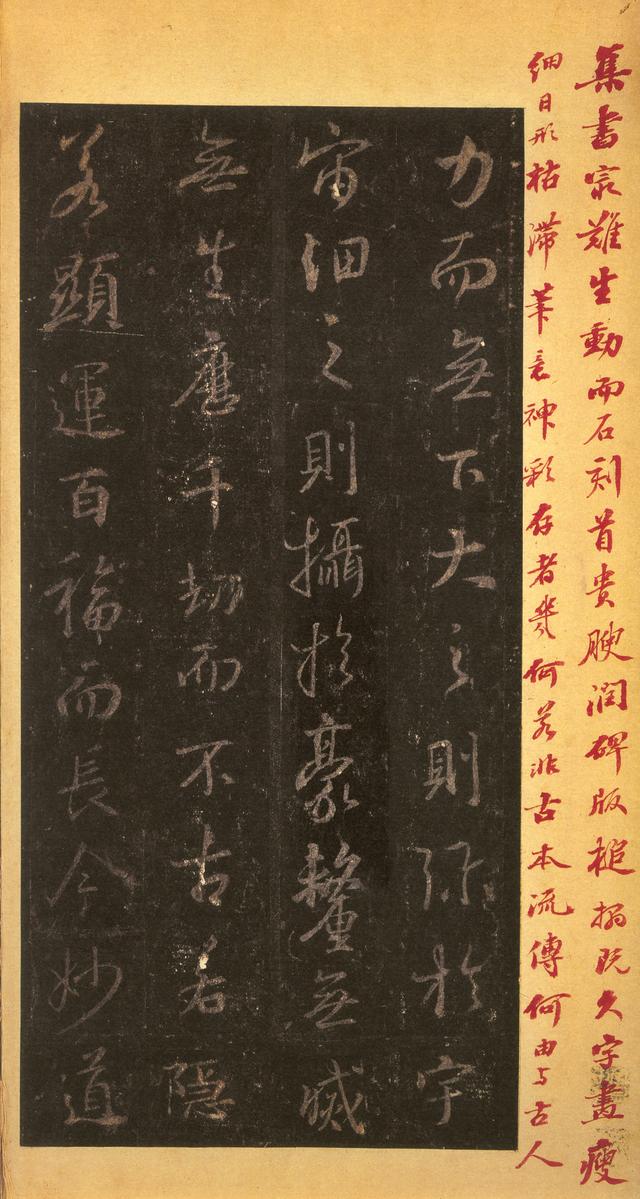 集書㝡難生動而石刻首貴腴潤碑版搥搨既久字畫瘦
細日形枯滯筆意神彩存者幾何若非古本流傳何由与古人
力而無下大之則弥於宇
宙細之則攝於豪釐無滅
無生歷千劫而不古若隱
若顯運百福而長今妙道